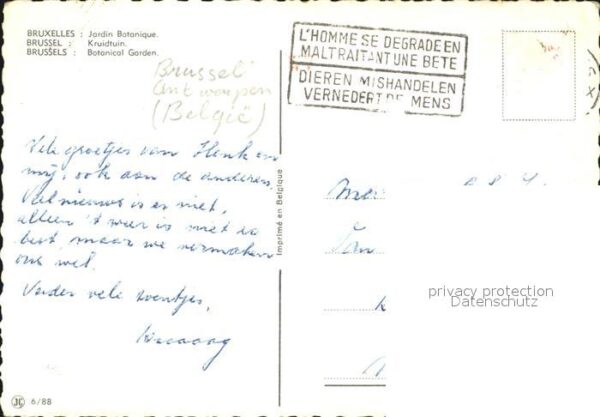 BRUXELLES : Jardin Botanique.
BRUSSEL : Kruidtuin.
BRUSSELS : Botanical Garden.
L'HOMME SE DEGRADE EN
MALTRAITANT UNE BETE
DIEREN MISHANDELEN
VERNEDERT DE MENS
Brussel
Antwerpen
(België)
Vele groetjes van Henk en
mij, ook aan de anderen.
Veel nieuws is er niet,
alleen 't weer is niet zo
best, maar we vermaken
ons wel.
Verder vele zoentjes,
Imprimé en Belgique
privacy protection
Datenschutz
JC 6/88